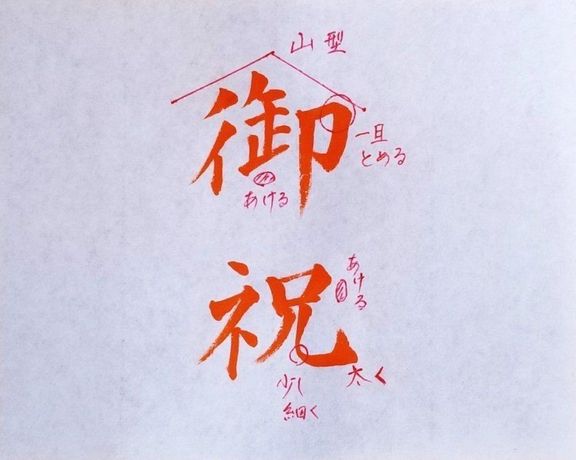 山型
御
一旦
とめる
あける
祝
あける
少し
細く
太く